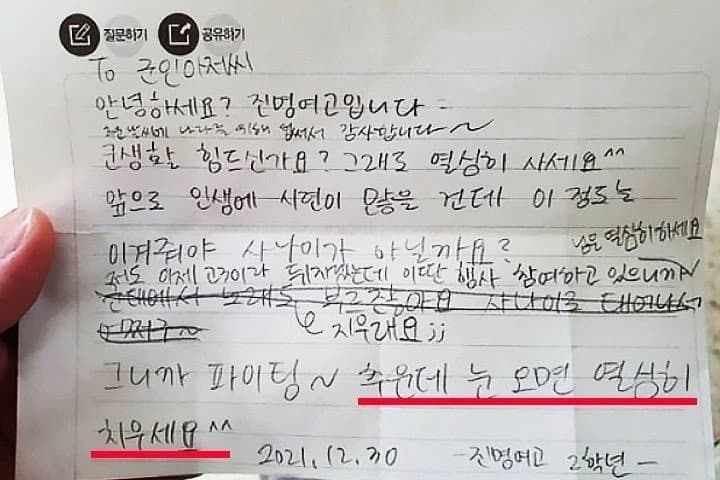 질문하기 공유하기
To 군인아저씨
안녕하세요? 진명여고입니다
추운 날씨에 나라를 위해 힘써서 감사합니다~
군생활 힘드신가요? 그래도 열심히 사세요^^
앞으로 인생에 시련이 많을 건데 이 정도는
이겨줘야 사나이가 아닐까요?
저도 이제 고3이라 뒤지겠는데 이딴 행사 참여하고 있으니까~
님은 열심히하세요
군대에서 노래도 부르잖아요 사나이로 태어나서
어쩌구~
지우래요;;
그니까 파이팅~ 추운데 눈 오면 열심히
치우세요^^
2021.12.30 -진명여고 2학년-